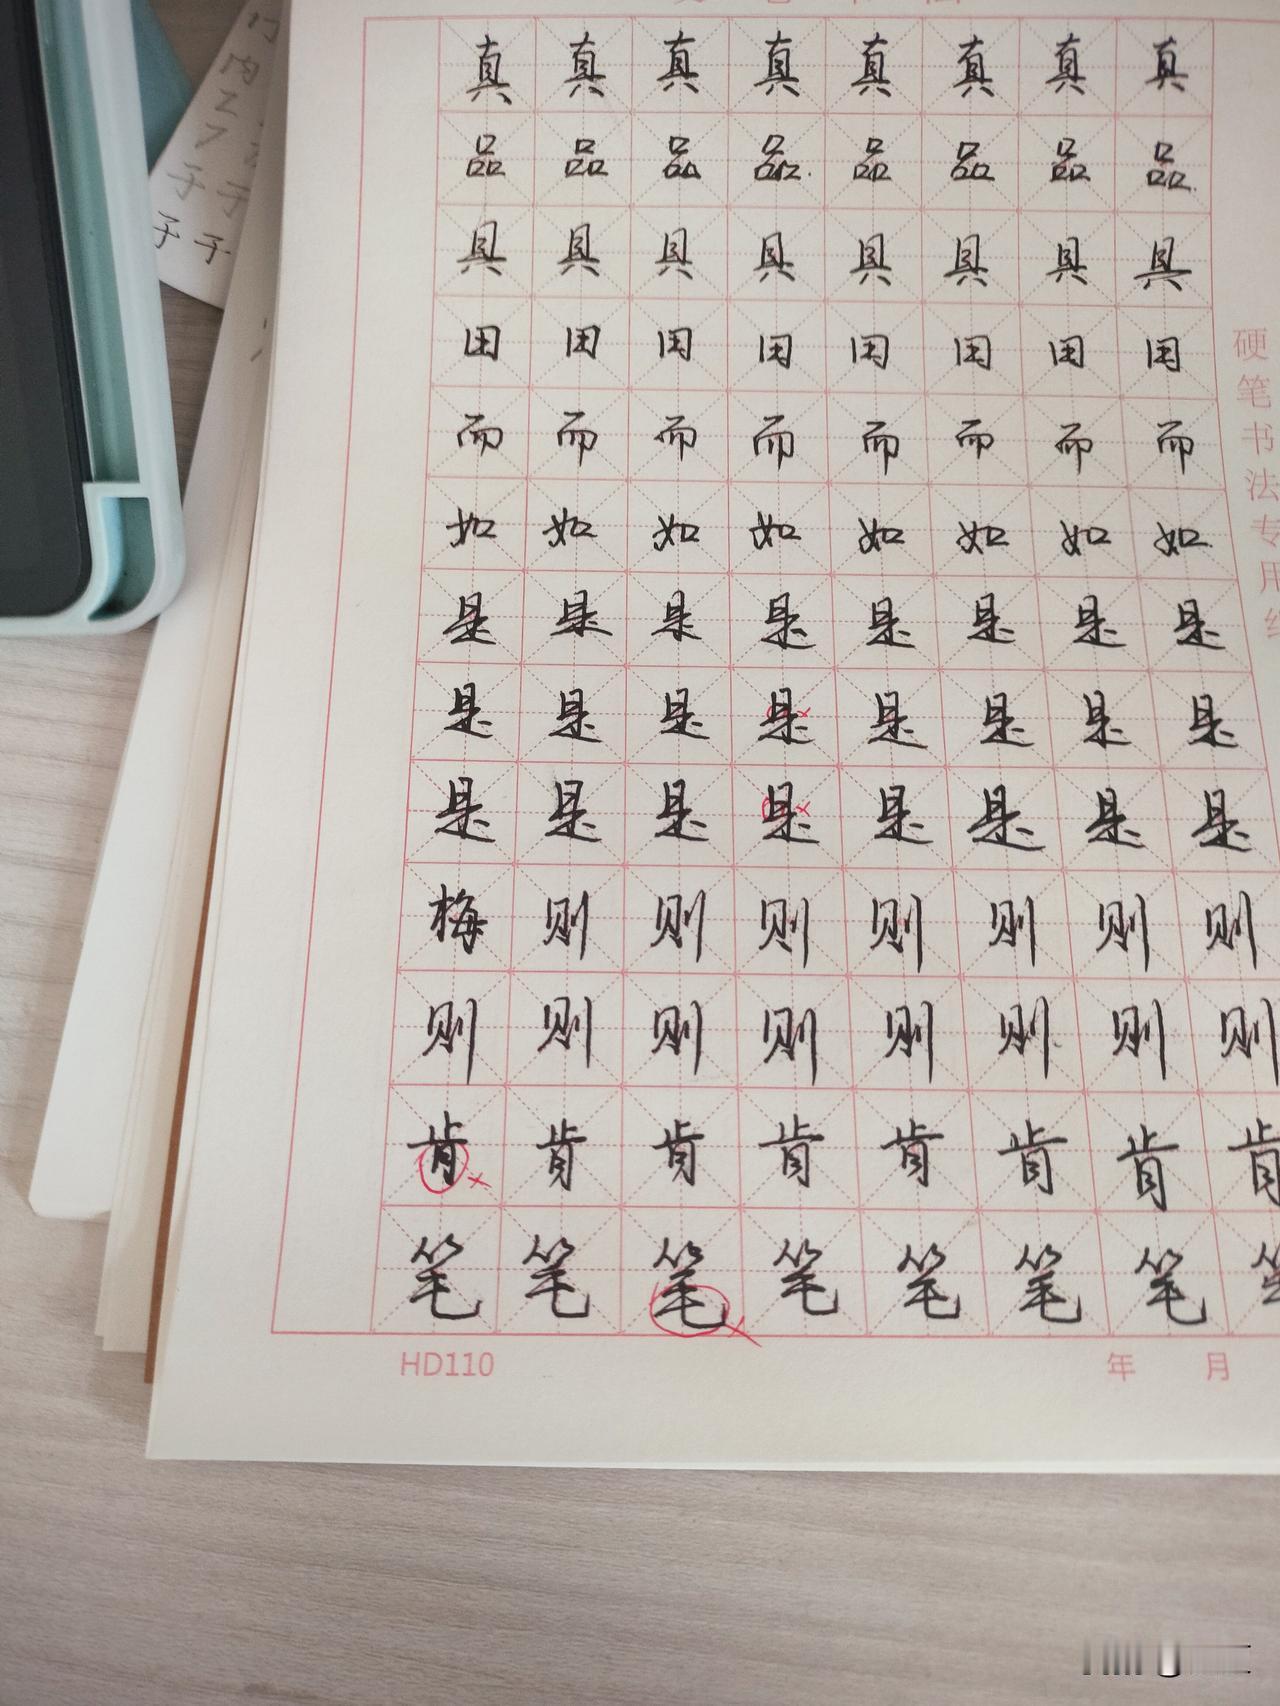 真真真真真真真真
品品品品品品品品
具具具具具具具具
田田田田田田田田
而而而而而而而而
如如如如如如如如
是是是是是是是是
是是是是是是是是
是是是是是是是是
梅则则则则则则则
则则则则则则则则
肯肯肯肯肯肯肯肯
笔笔笔笔笔笔笔
硬笔书法专用
HD110
年 月
内
子 子
子 子